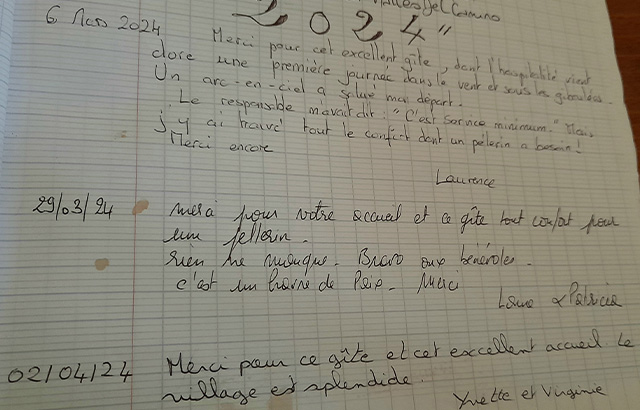 del Camino
2024"
6 Mars 2024
Merci pour cet excellent gîte, dont l'hospitalité vient
clore une première journée dans le vent et sous les giboulées.
Un arc-en-ciel a salué mon départ.
Le responsable m'avait dit : "C'est service minimum." Mais
j'y ai trouvé tout le confort dont un pèlerin a besoin !
Merci encore
Laurence
29/03/24 merci pour votre accueil et ce gîte tout confort pour
un pellerin.
rien ne manque. Bravo aux bénévoles.
c'est un havre de Paix. Merci
& Patricia
02/04/24 Merci pour ce gîte et cet excellent accueil. Le
village est splendide.
Yvette et Virginie